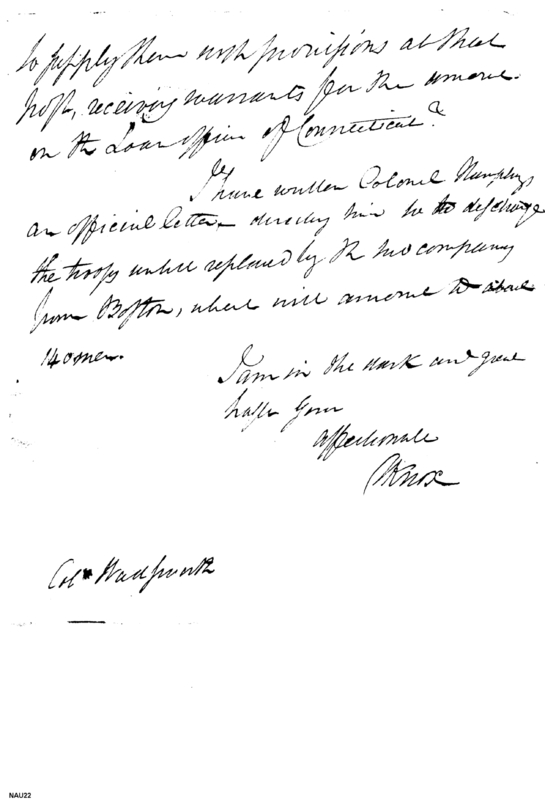 to supply them with provisions at that
post, receiving warrants for the amount
on the Loan office of Connecticut?
I have written Colonel Humphrys
an official letter directing him not to discharge
the troops untill replaced by the two companies
from Boston, which will amount to about
140 men.
I am in the dark and great
haste Your
affectionate
HKnox
Colo Wadsworth
NAU22